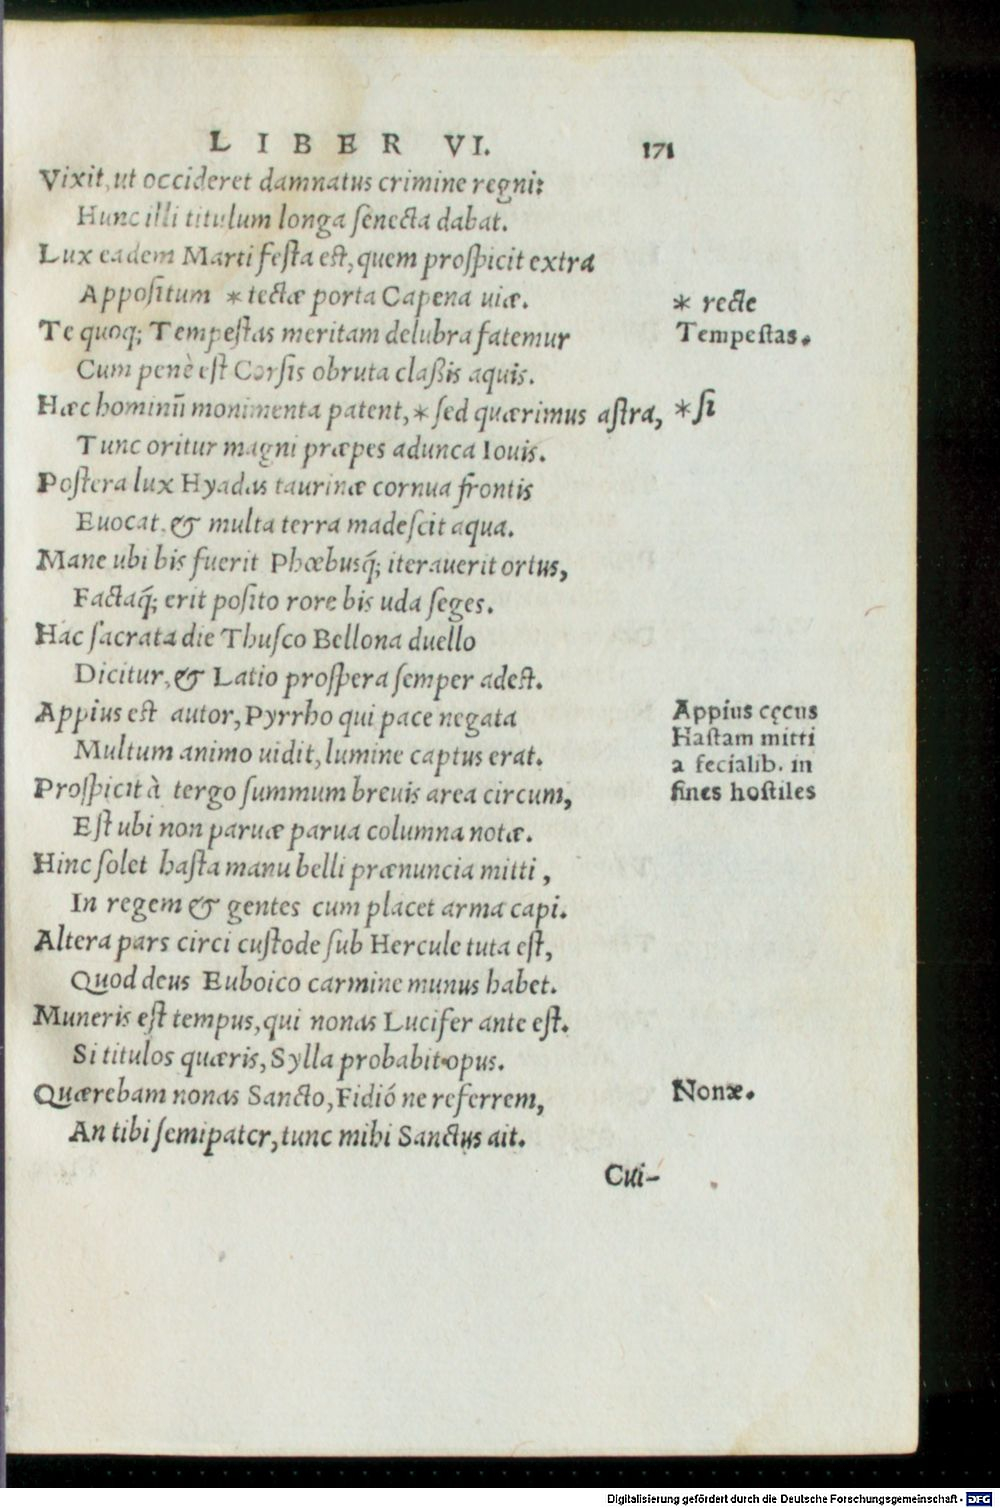 LIBER VI. 171
Vixit, ut occideret damnatus crimine regni:
Hunc illi titulum longa ſenecta dabat.
Lux eadem Marti feſta eſt, quem proſpicit extra
Appoſitum * tectæ porta Capena uiæ. * recte
Te quoq; Tempeſtas meritam delubra fatemur Tempeſtas.
Cum penè eſt Corſis obruta claßis aquis.
Hæc hominū monimenta patent, * ſed quærimus aſtra, * ſi
Tunc oritur magni præpes adunca Iouis.
Poſtera lux Hyadas taurinæ cornua frontis
Euocat, & multa terra madeſcit aqua.
Mane ubi bis fuerit Phœbusq́; iterauerit ortus,
Factaq́; erit poſito rore bis uda ſeges.
Hac ſacrata die Thuſco Bellona duello
Dicitur, & Latio proſpera ſemper adeſt.
Appius eſt autor, Pyrrho qui pace negata Appius cęcus
Multum animo uidit, lumine captus erat. Haſtam mitti
a fecialib. in
Proſpicit à tergo ſummum breuis area circum, fines hoſtiles
Eſt ubi non paruæ parua columna notæ.
Hinc ſolet haſta manu belli prænuncia mitti,
In regem & gentes cum placet arma capi.
Altera pars circi cuſtode ſub Hercule tuta eſt,
Quod deus Euboico carmine munus habet.
Muneris eſt tempus, qui nonas Lucifer ante eſt.
Si titulos quæris, Sylla probabit opus.
Quærebam nonas Sancto, Fidió ne referrem, Nonæ.
An tibi ſemipater, tunc mihi Sanctus ait.
Cui-
Digitalisierung gefördert durch die Deutsche Forschungsgemeinschaft - DFG